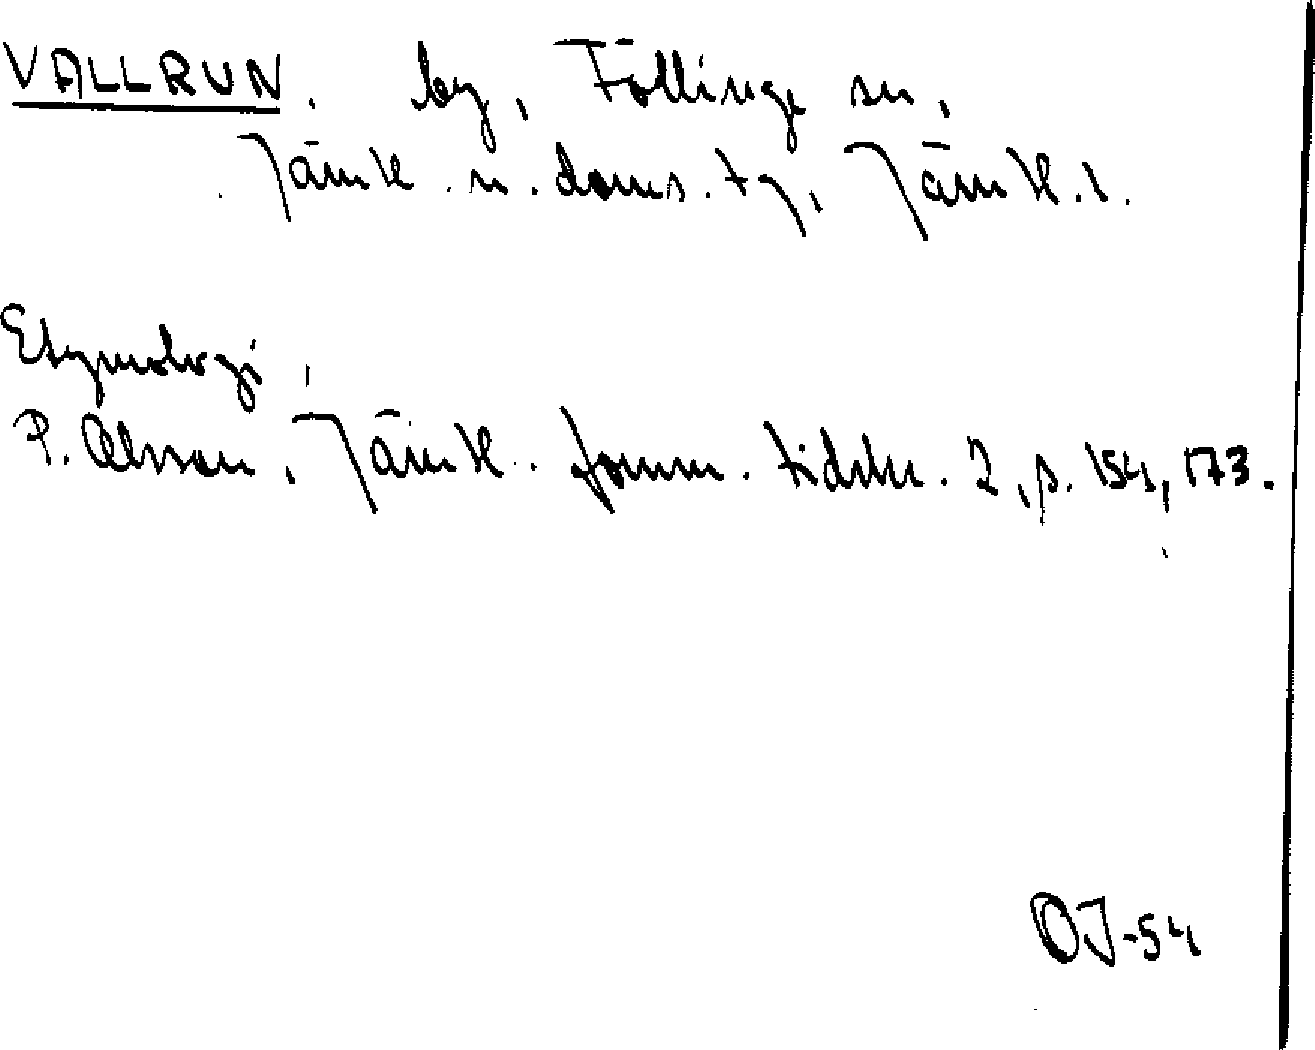 VALLRUN. by, Föllinge sn,
Jämtl. n. doms. tg, Jämtl. l.
Etymologi,
P. Olsson, Jämtl. fornm. tidskr. 2, s. 154, 173.
OJ-54